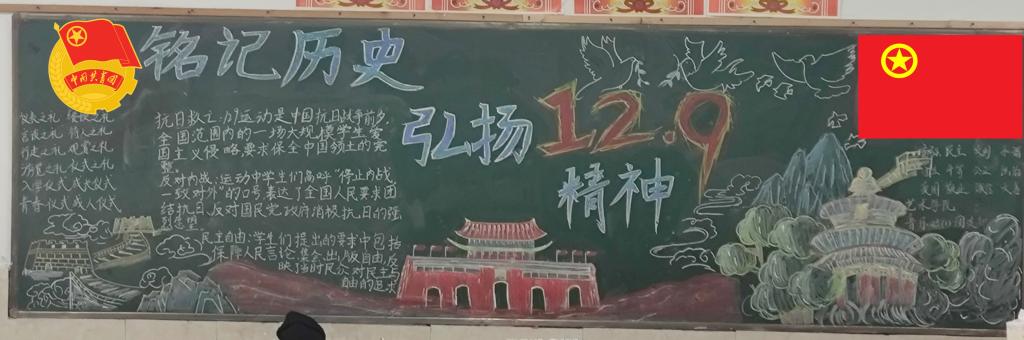 铭记历史
弘扬12.9
精神
中国共青团
仪表之礼 餐饮之礼
言谈之礼 待人之礼
行走之礼 观赏之礼
游览之礼 仪式之礼
入学仪式 成长仪式
青春仪式 成人仪式
抗日救亡:一二九运动是中国抗日战争前夕,
全国范围内的一场大规模学生爱
国主义 侵略 要求保全中国领土的完
整
反对内战:运动中学生们高呼“停止内战
一致对外”的口号表达了全国人民要求团
结抗日、反对国民党政府消极抗日的强
烈愿望
民主自由:学生们提出的要求中包括
保障人民言论、集会、出版自由,反
映了当时民众对民主
自由的追求
民主
平等 公正 法治
爱国 敬业 诚信 友善